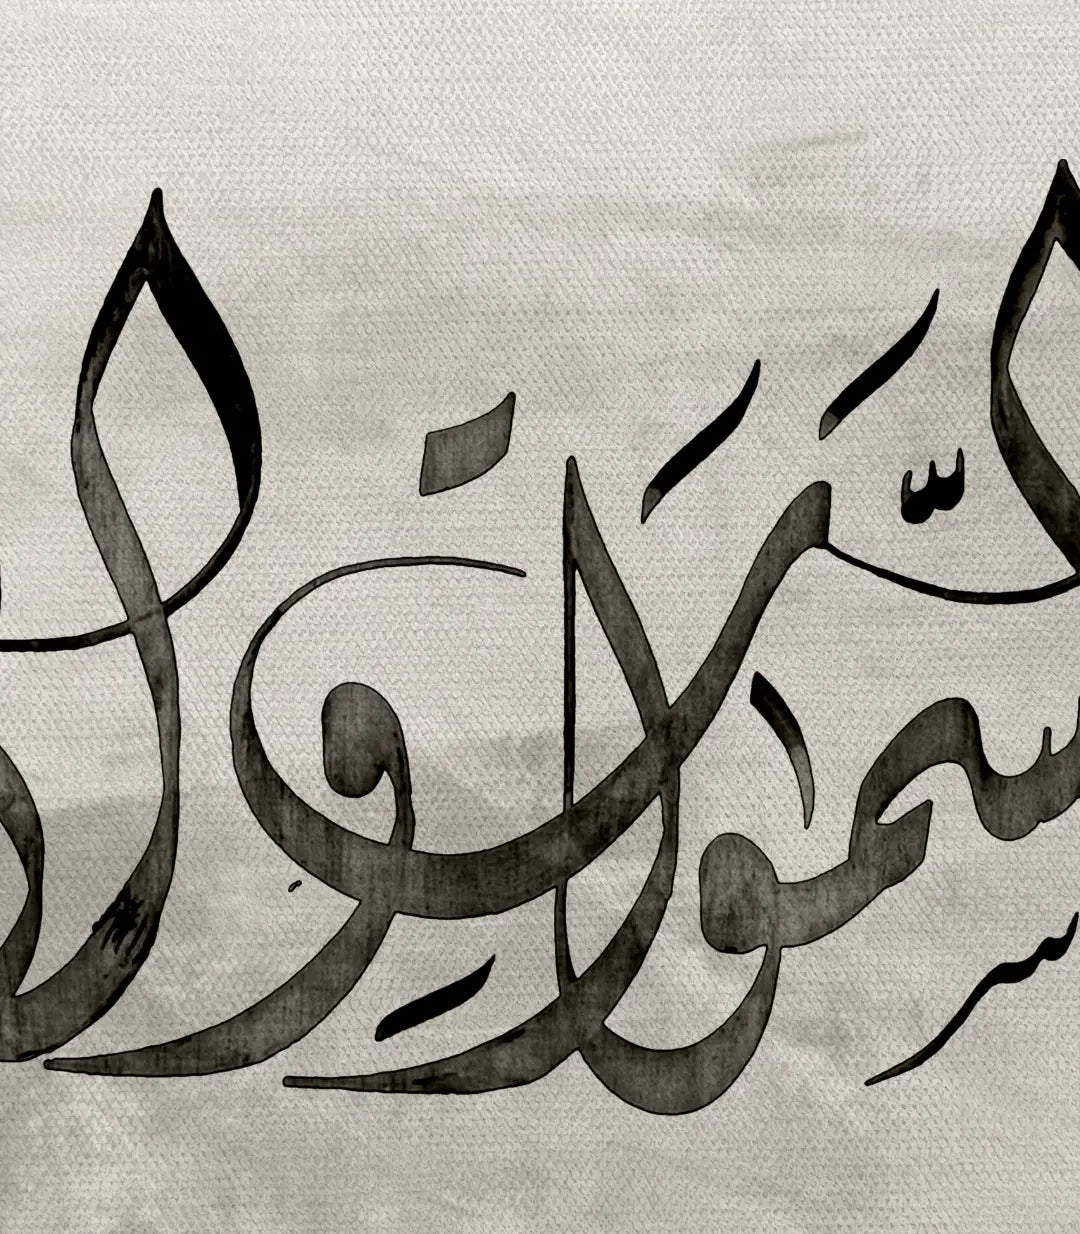 السَّمَوات و